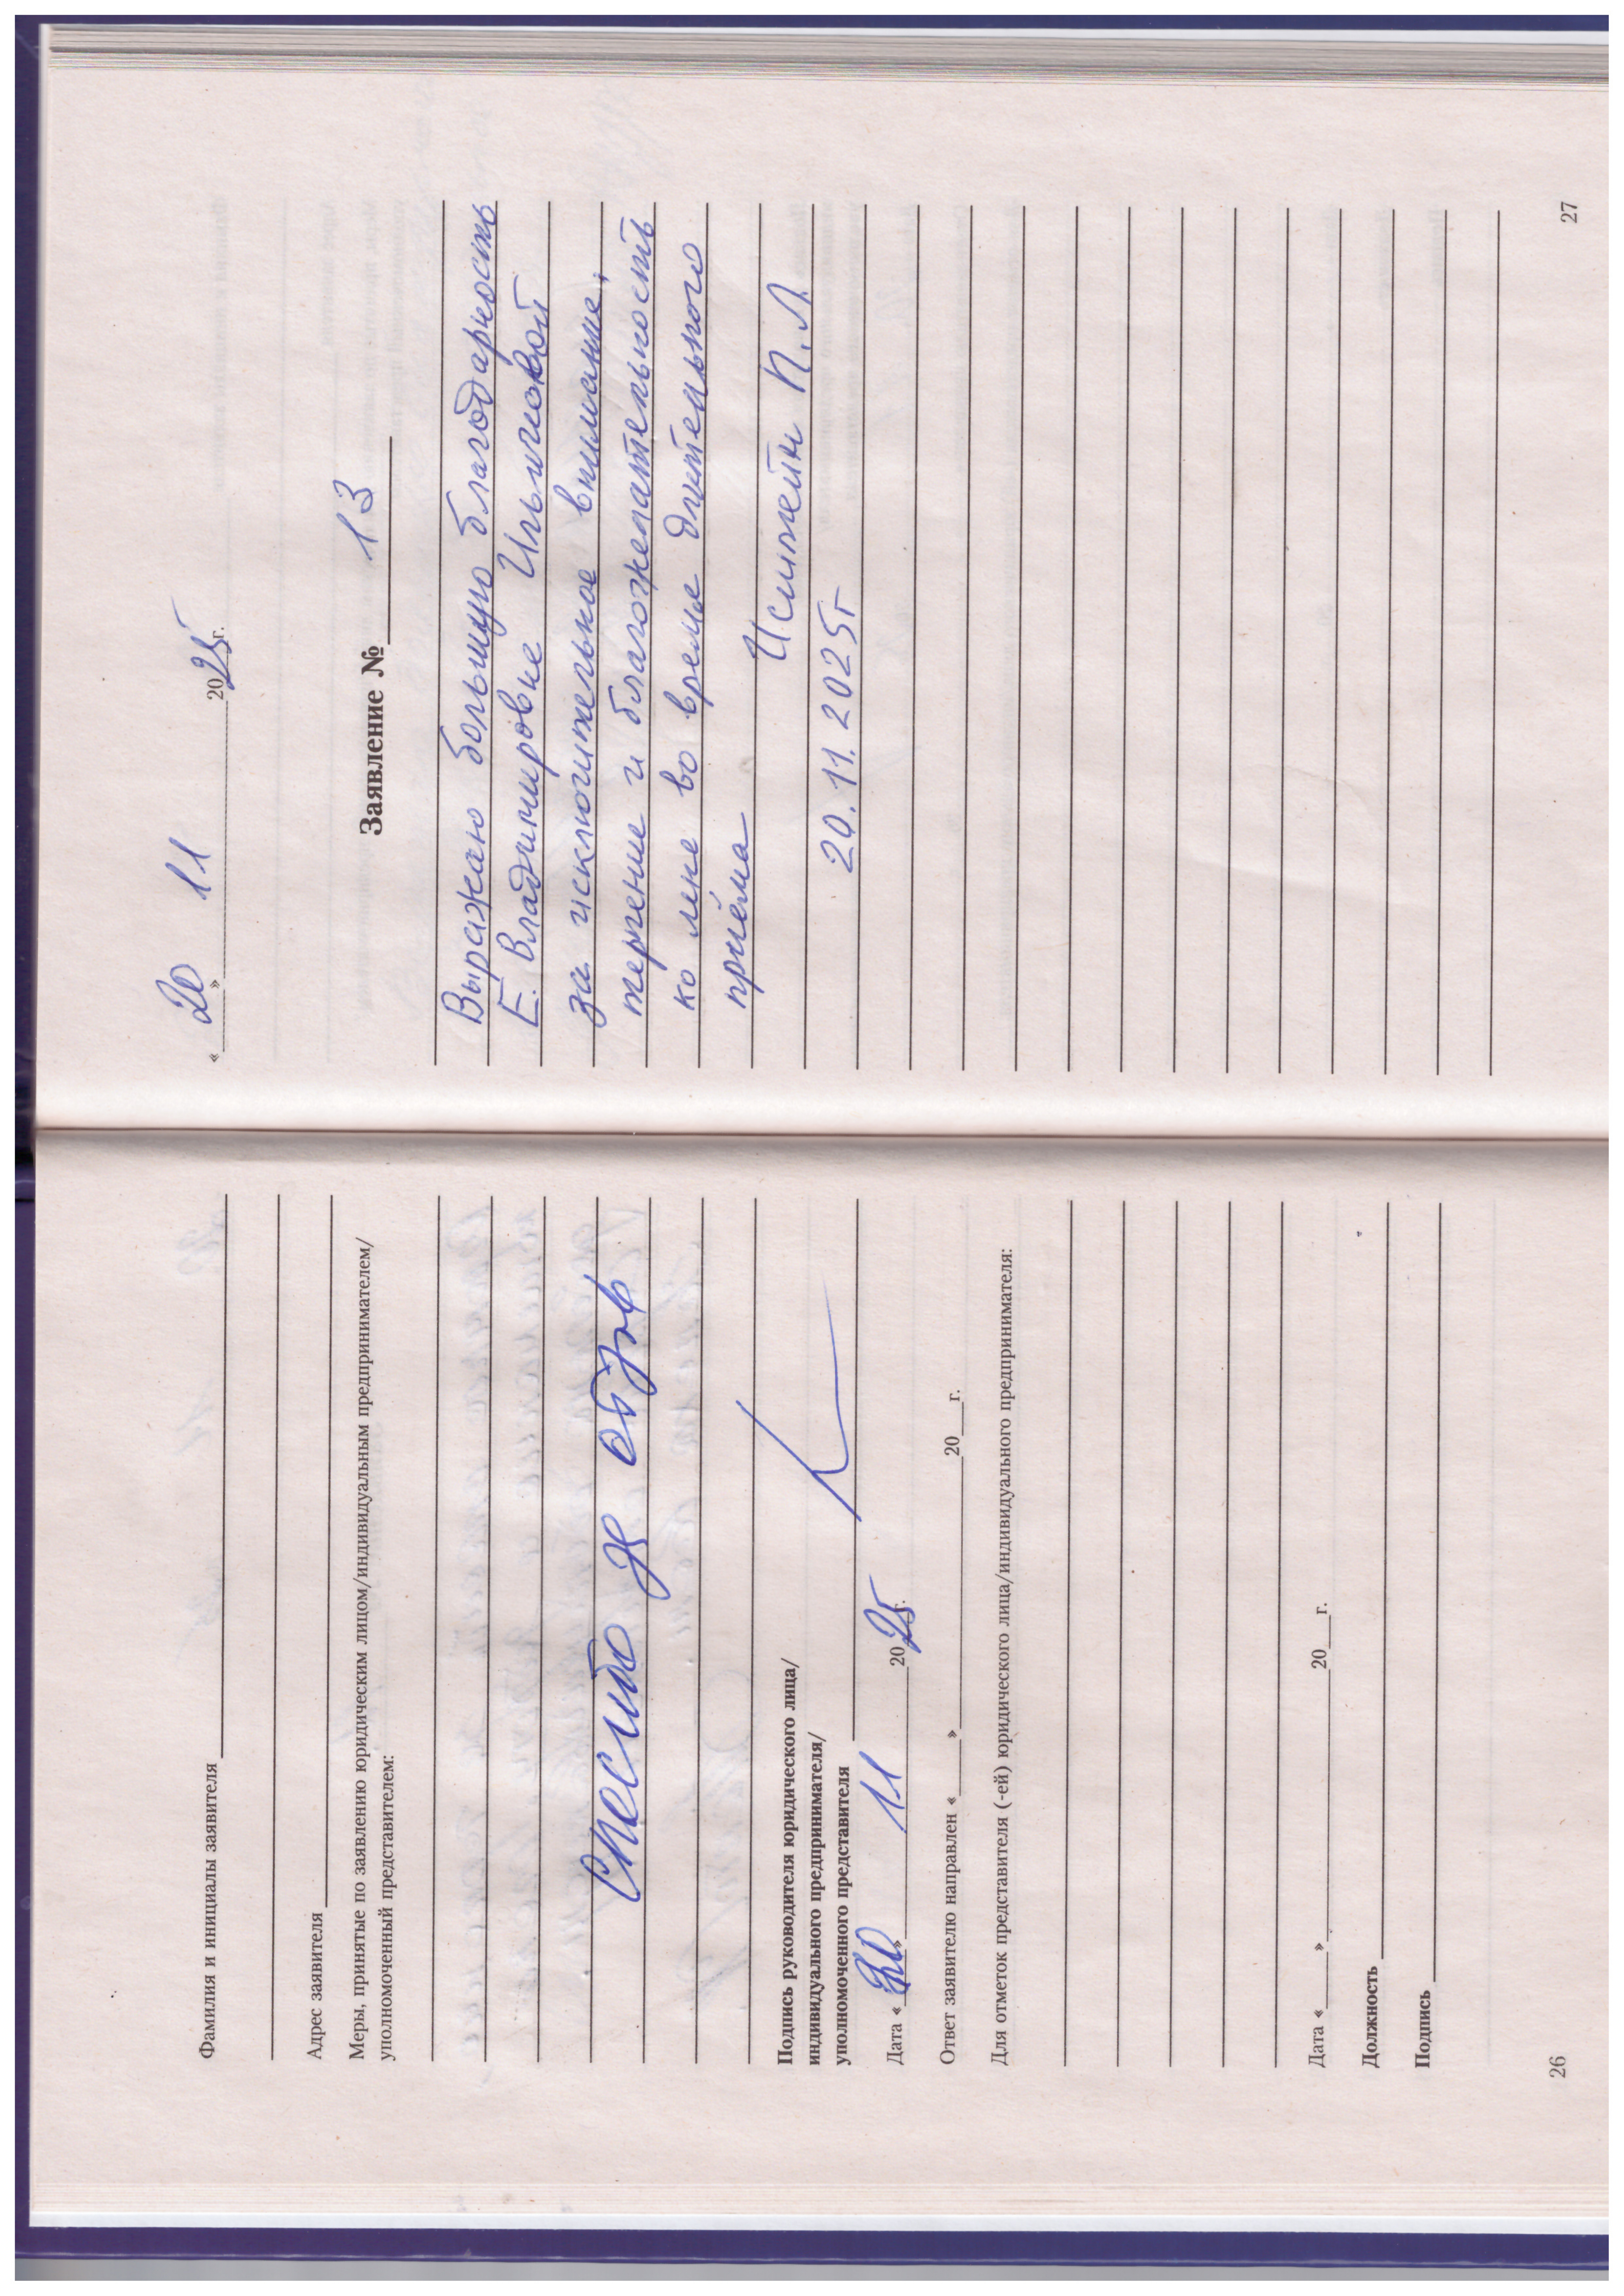 Фамилия и инициалы заявителя
Адрес заявителя
Меры, принятые по заявлению юридическим лицом/индивидуальным предпринимателем/
уполномоченный представителем:
Спасибо за отзыв
Подпись руководителя юридического лица/
индивидуального предпринимателя/
уполномоченного представителя
Дата « » 11 2025 г.
Ответ заявителю направлен « » 20 г.
Для отметок представителя (-ей) юридического лица/индивидуального предпринимателя:
Дата « » 20 г.
Должность
Подпись
26
«20» 11 2025 г.
Заявление № 13
Выражаю большую благодарность
Е. Владимировне
за исключительное внимание,
терпение и благожелательность
ко мне во время длительного
приёма
П.Л.
20.11.2025г
27